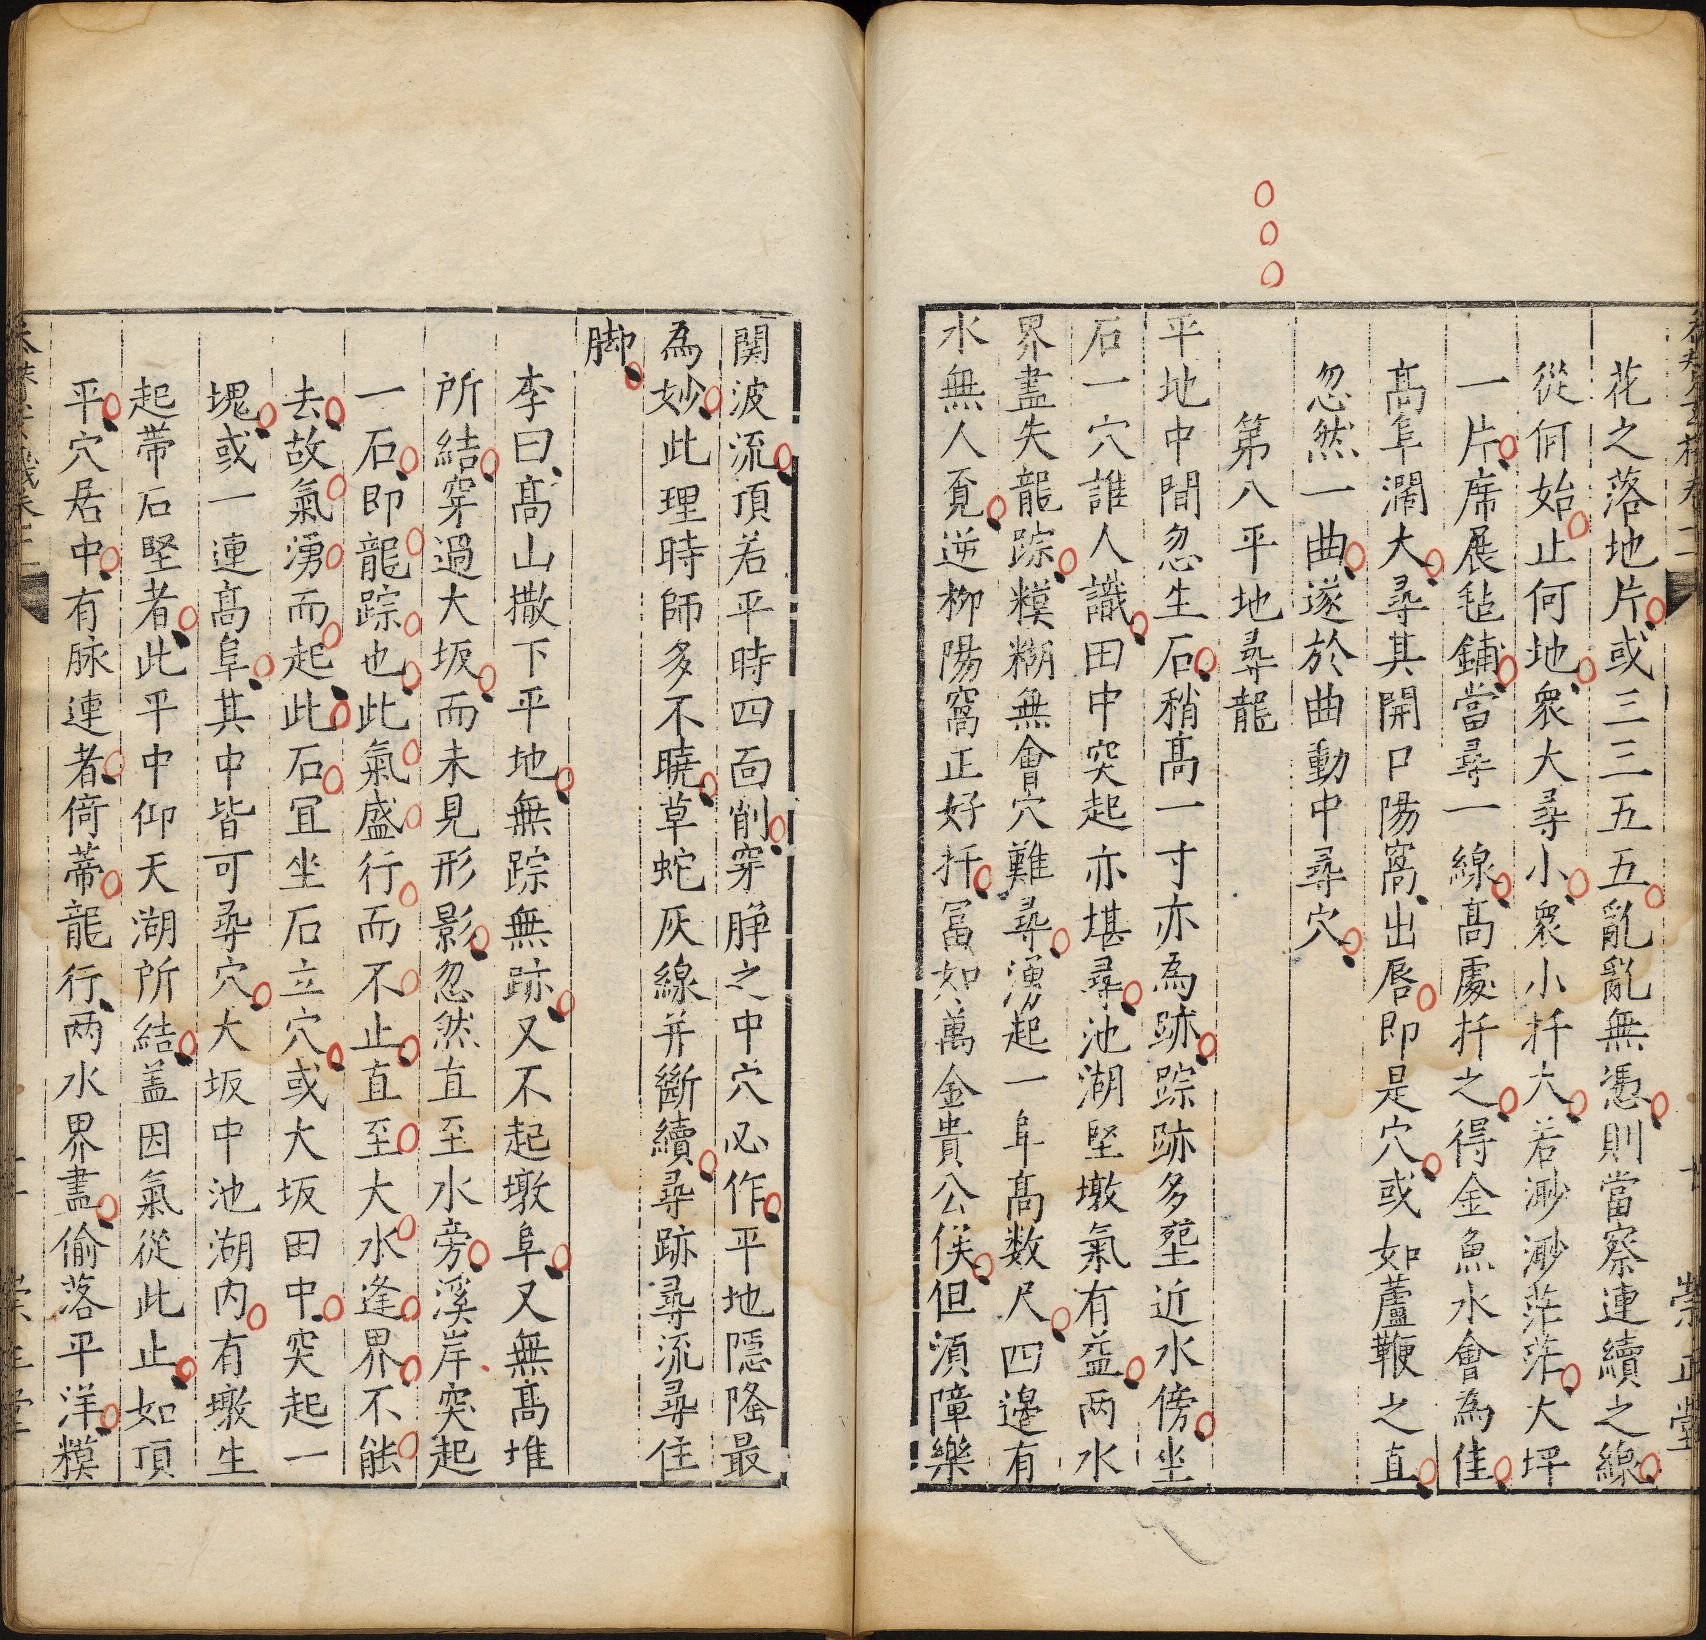 花之落地片或三三五五亂亂無憑則當察連續之線
從何始止何地衆大尋小衆小扦大若渺渺茫茫大坪
一片席展毡鋪當尋一線髙處扦之得金魚水會為佳
髙阜濶大尋其開口陽窩出唇即是穴或如蘆鞭之直
忽然一曲遂於曲動中尋穴
第八平地尋龍
平地中間忽生石稍髙一寸亦為跡踪跡多壟近水傍坐
石一穴誰人識田中突起亦堪尋池湖堅墩氣有益两水
界盡失龍踪糢糊無會穴難尋湧起一阜髙数尺四邉有
水無人覔逆栁陽窩正好扦冨如萬金貴公侯但湏障樂
関波流頂若平時四靣削穿脖之中穴必作平地隠隆最
為妙此理時師多不曉草蛇灰線并斷續尋跡尋流尋住
脚
李曰髙山撒下平地無踪無跡又不起墩阜又無髙堆
所結穿過大坂而未見形影忽然直至水旁溪岸突起
一石即龍踪也此氣盛行而不止直至大水逢界不能
去故氣湧而起此石冝坐石立穴或大坂田中突起一
塊或一連髙阜其中皆可尋穴大坂中池湖内有墩生
起帯石堅者此平中仰天湖所結盖因氣從此止如頂
平穴居中有脉連者倚蒂龍行两水界盡偷落平洋糢